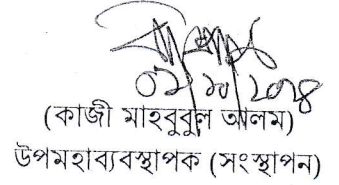 ০২/১০/২০২৪
(কাজী মাহবুবুল আলম)
উপমহাব্যবস্থাপক (সংস্থাপন)